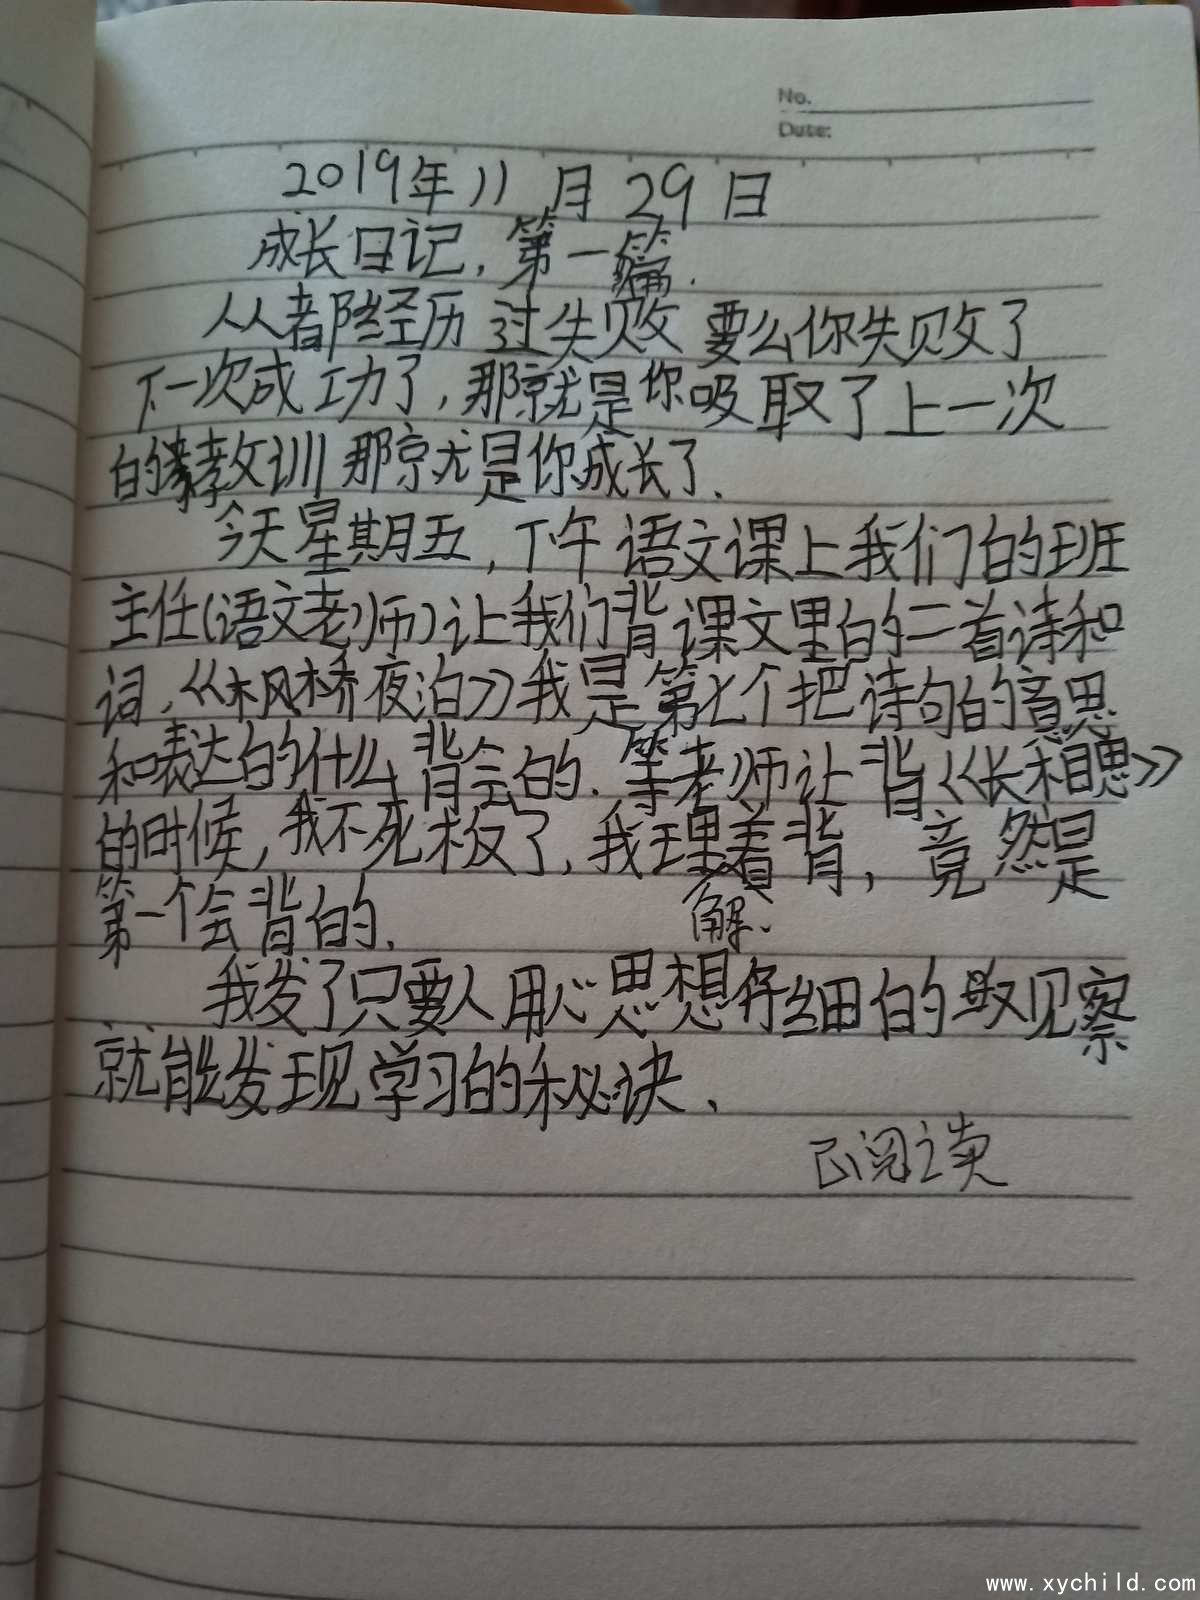 No.
Date:
2019年11月29日
成长日记,第一篇.
人人都经历过失败 要么你失败了
下一次成功了,那就是你吸取了上一次
的教训那就是你成长了.
今天星期五,下午语文课上我们的班
主任(语文老师)让我们背课文里的二首诗和
词,《枫桥夜泊》我是第七个把诗句的意思
和表达的什么背会的.等老师让背《长相思》
的时候,我不死板了,我理着背,竟然是
第一个会背的.
解.
我发了只要人用心思想仔细的 观察
就能发现学习的秘诀.
已阅读
www.xychild.com